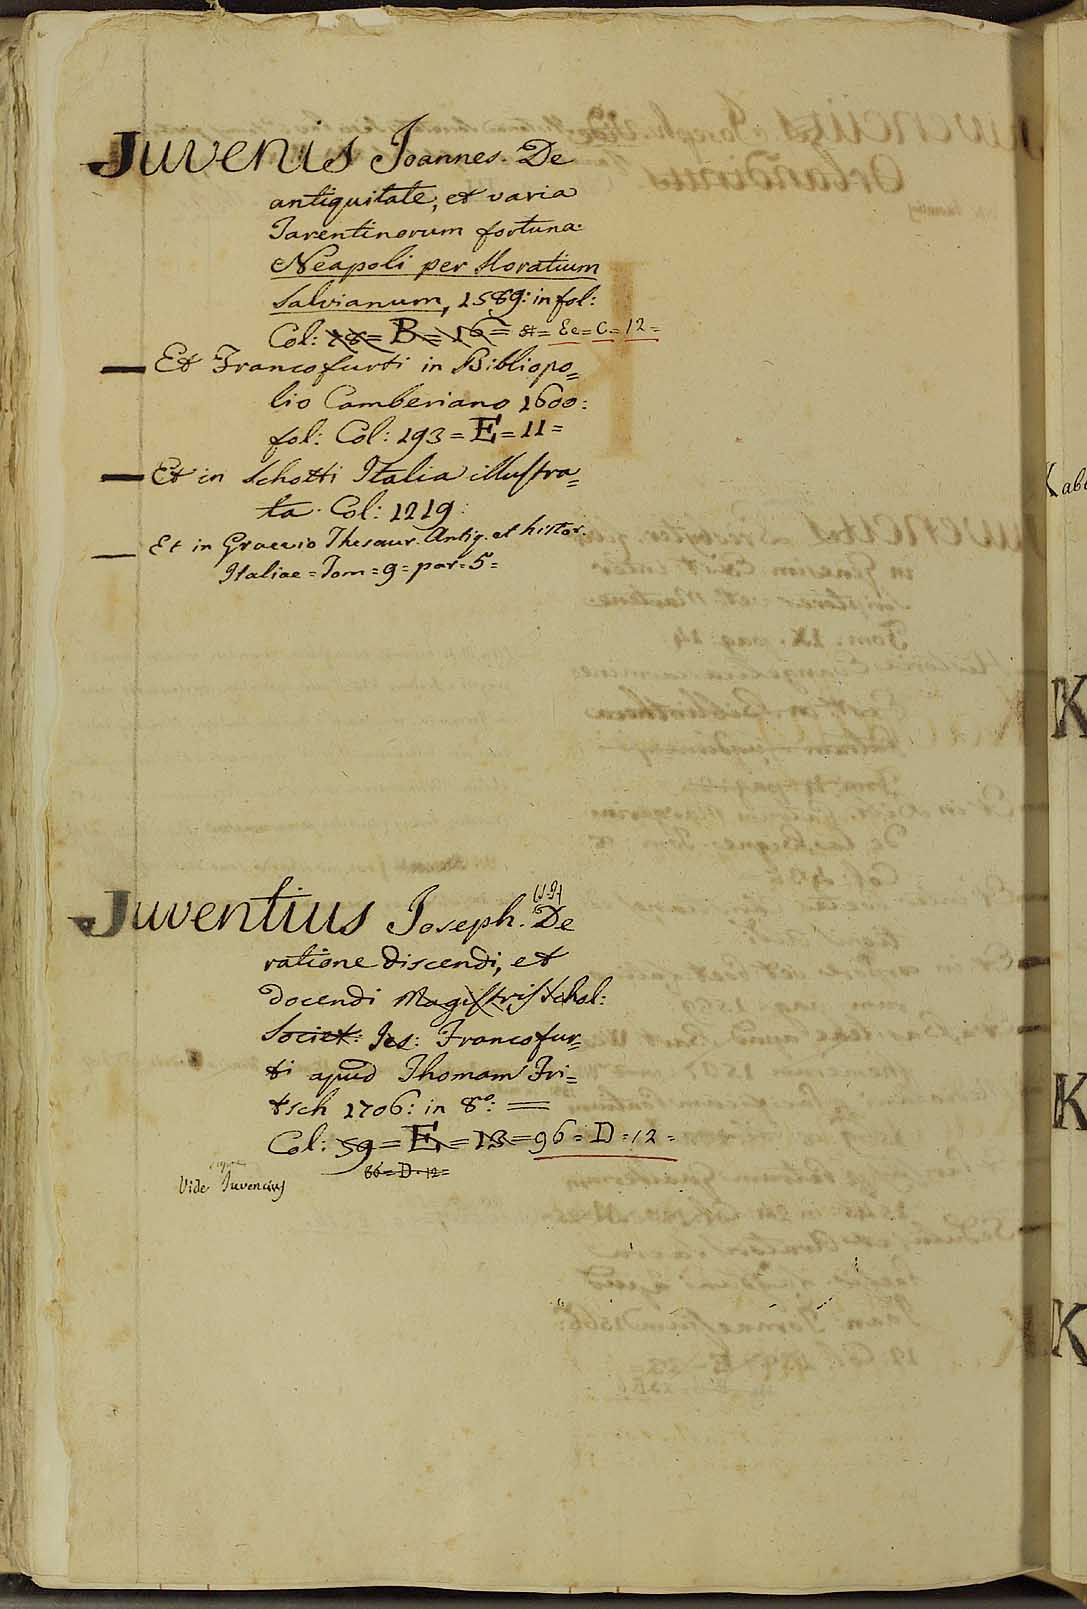 Juvenis Joannes. De
antiquitate, et varia
Tarentinorum fortuna.
Neapoli per Horatium
Salvianum, 1589: in fol:
Col: 78= B= 16= = Ee= C= 12=
Et Francofurti in Bibliopo=
lio Camberiano 1600:
fol: Col: 193= E= 11=
Et in Schotti Italia illustra=
ta. Col: 1219:
Et in Graevio Thesaur. Antiq. et histor.
Italiae= Tom= 9= par= 5=
Juventius Joseph. (S.J.) De
ratione discendi, et
docendi Magistris schol:
Societ: Jes: Francofur=
ti apud Thomam Fri=
tsch 1706: in 8º: =
Col: 59= E= 13= 96= D= 12=
86= D= 12=
Vide Juvencius
Kabb
K
K
K